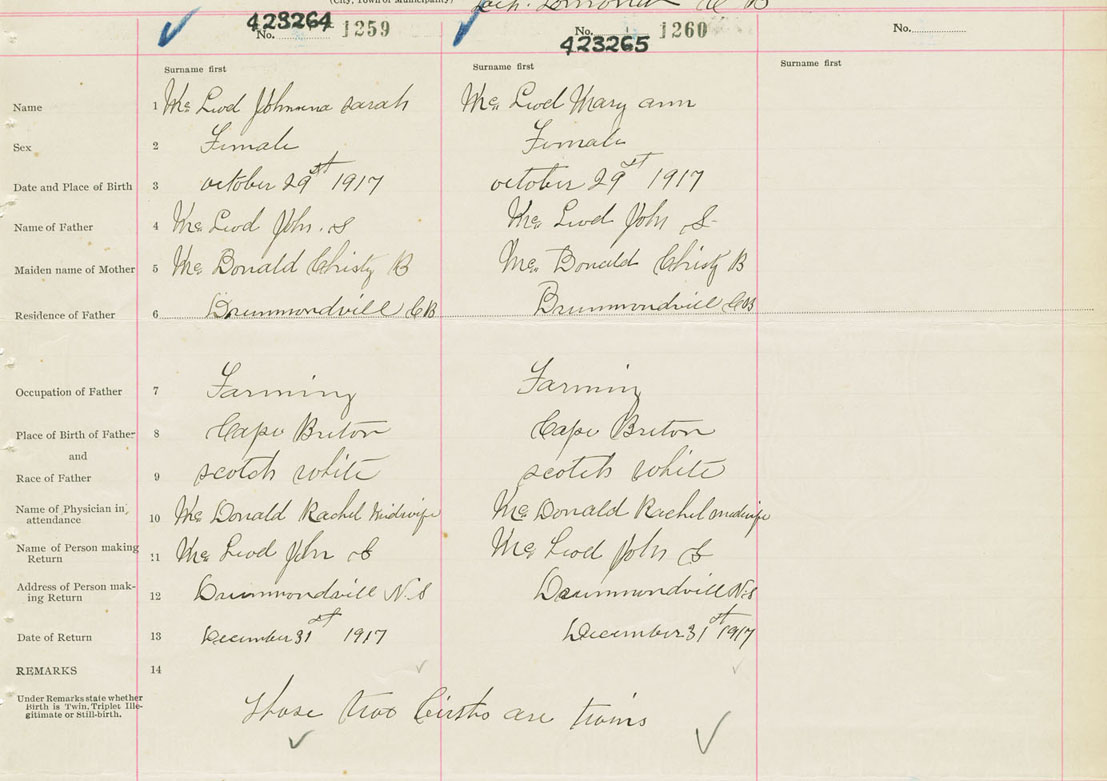 (City, Town or Municipality) Loch Lomond C B
423264 No. 1259 No. 423265 1260 No.
Surname first Surname first Surname first
Name 1 Mc Leod Johnena Sarah Mc Leod Mary ann
Sex 2 Female Female
Date and Place of Birth 3 october 29st 1917 october 29st 1917
Name of Father 4 Mc Leod John . S Mc Leod John S
Maiden name of Mother 5 Mc Donald Christy B Mc Donald Christy B
Residence of Father 6 Drummondvill CB Drummondvill CB
Occupation of Father 7 Farming Farming
Place of Birth of Father 8 Cape Briton Cape Briton
and
Race of Father 9 scotch white scotch white
Name of Physician in attendance 10 Mc Donald Rachel Midwife Mc Donald Rachel midwife
Name of Person making Return 11 Mc Leod John S Mc Leod John S
Address of Person making Return 12 Drummondvill N.S Drummondvill N.S
Date of Return 13 December 31st 1917 December 31st 1917
REMARKS 14
Under Remarks state whether
Birth is Twin, Triplet Ille-
gitimate or Still-birth.
those two Births are twins